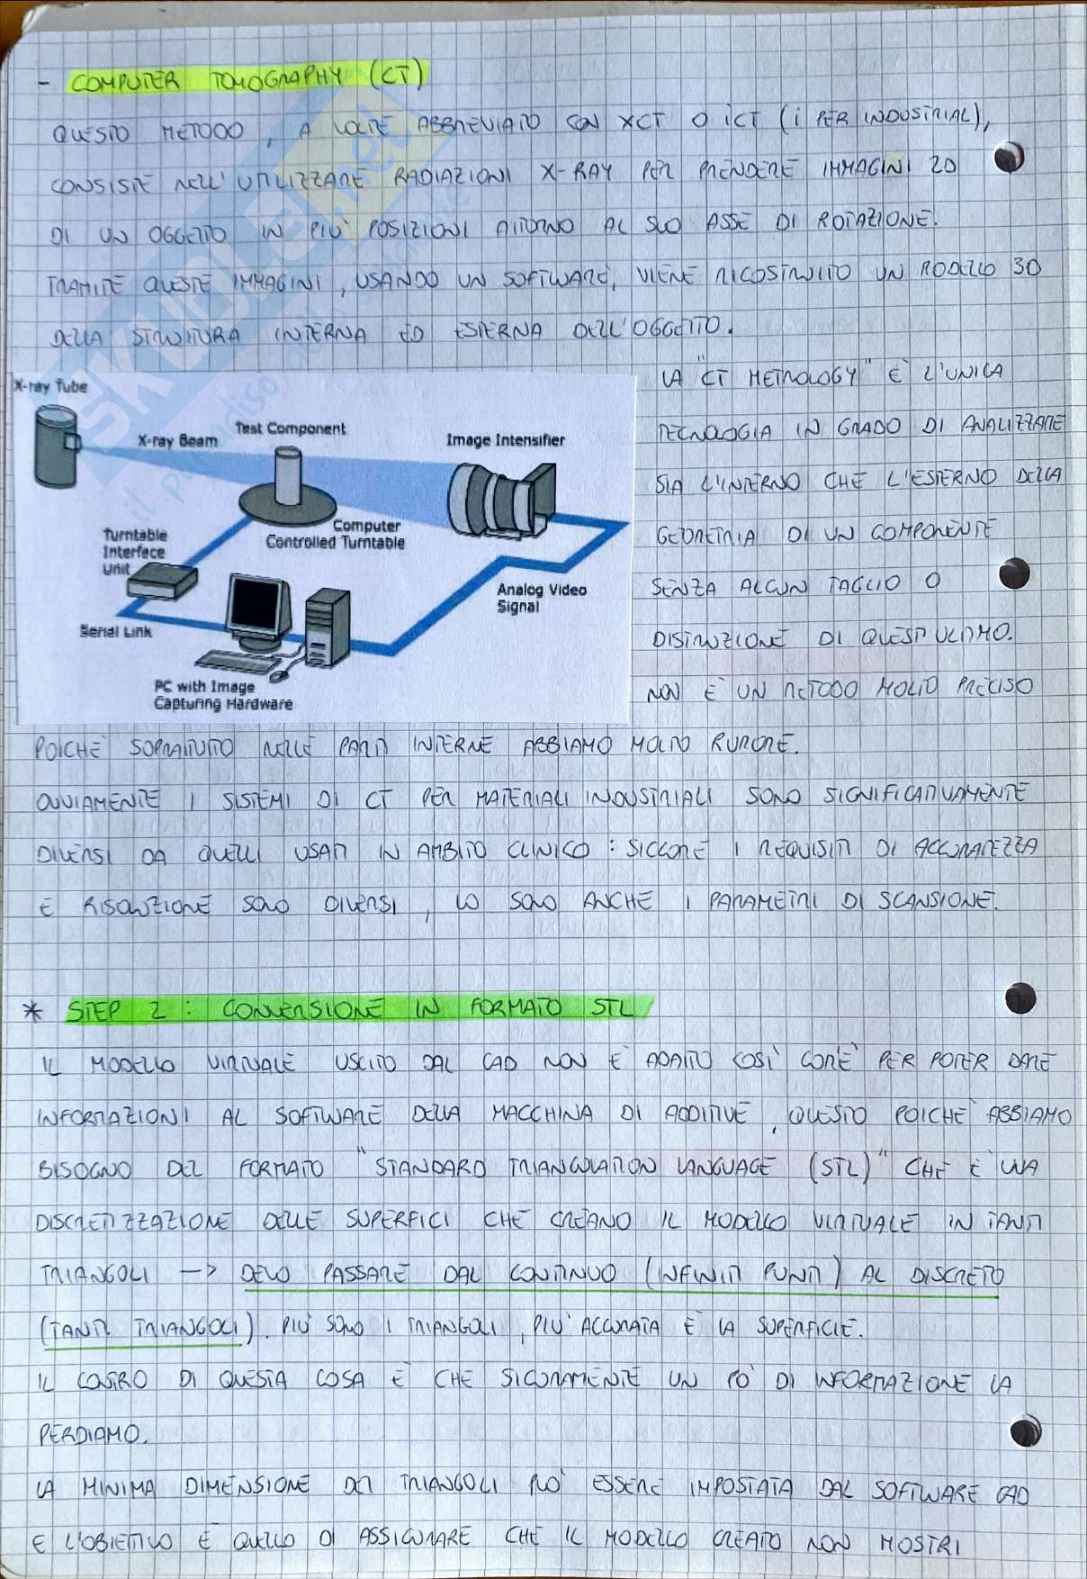 - COMPUTER TOMOGRAPHY (CT)
QUESTO METODO, A VOLTE ABBREVIATO CON XCT O iCT (i PER INDUSTRIAL),
CONSISTE NELL'UTILIZZARE RADIAZIONI X-RAY PER PRENDERE IMMAGINI 2D
DI UN OGGETTO IN PIU' POSIZIONI ATTORNO AL SUO ASSE DI ROTAZIONE.
TRAMITE QUESTE IMMAGINI, USANDO UN SOFTWARE, VIENE RICOSTRUITO UN MODELLO 3D
DELLA STRUTTURA INTERNA ED ESTERNA DELL'OGGETTO.
LA "CT METROLOGY" E' L'UNICA
TECNOLOGIA IN GRADO DI ANALIZZARE
SIA L'INTERNO CHE L'ESTERNO DELLA
GEOMETRIA DI UN COMPONENTE
SENZA ALCUN TAGLIO O
DISTRUZIONE DI QUEST'ULTIMO.
NON E' UN METODO MOLTO PRECISO
X-ray Tube
X-ray Beam
Test Component
Image Intensifier
Computer
Controlled Turntable
Turntable
Interface
Unit
Analog Video
Signal
Serial Link
PC with Image
Capturing Hardware
POICHE' SOPRATTUTTO NELLE PARTI INTERNE ABBIAMO MOLTO RUMORE.
OVVIAMENTE I SISTEMI DI CT PER MATERIALI INDUSTRIALI SONO SIGNIFICATIVAMENTE
DIVERSI DA QUELLI USATI IN AMBITO CLINICO: SICCOME I REQUISITI DI ACCURATEZZA
E RISOLUZIONE SONO DIVERSI, LO SONO ANCHE I PARAMETRI DI SCANSIONE.
* STEP 2: CONVERSIONE IN FORMATO STL
IL MODELLO VIRTUALE USCITO DAL CAD NON E' ADATTO COSI' COM'E' PER POTER DARE
INFORMAZIONI AL SOFTWARE DELLA MACCHINA DI ADDITIVE, QUESTO POICHE' ABBIAMO
BISOGNO DEL FORMATO "STANDARD TRIANGULATION LANGUAGE (STL)" CHE E' UNA
DISCRETIZZAZIONE DELLE SUPERFICI CHE CREANO IL MODELLO VIRTUALE IN TANTI
TRIANGOLI -> DEVO PASSARE DAL CONTINUO (INFINITI PUNTI) AL DISCRETO
(TANTI TRIANGOLI). PIU' SONO I TRIANGOLI, PIU' ACCURATA E' LA SUPERFICIE.
IL CONTRO DI QUESTA COSA E' CHE SICURAMENTE UN PO' DI INFORMAZIONE LA
PERDIAMO.
LA MINIMA DIMENSIONE DEI TRIANGOLI PUO' ESSERE IMPOSTATA DAL SOFTWARE CAD
E L'OBIETTIVO E' QUELLO DI ASSICURARE CHE IL MODELLO CREATO NON MOSTRI